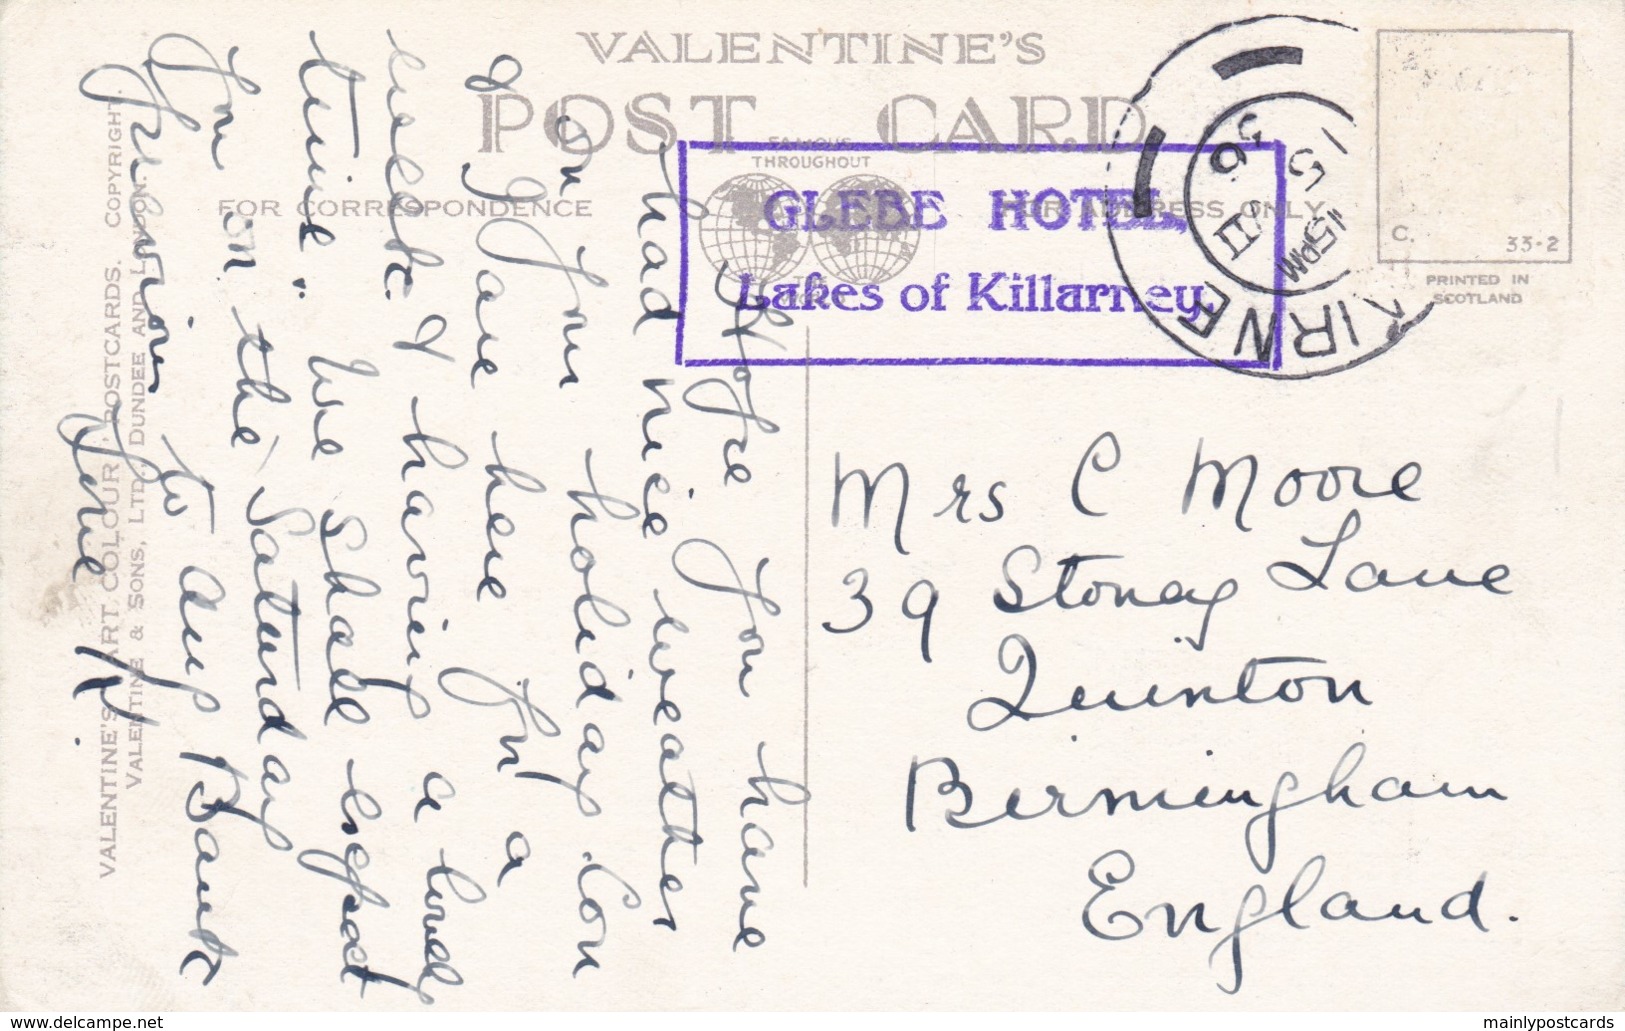 VALENTINE'S
POST CARD
FAMOUS
THROUGHOUT
FOR CORRESPONDENCE
FOR ADDRESS ONLY
GLEBE HOTEL,
Lakes of Killarney.
15 VII 36
PM
C.
33-2
PRINTED IN
SCOTLAND
VALENTINE'S "ART COLOUR" POSTCARDS. COPYRIGHT.
VALENTINE & SONS, LTD., DUNDEE AND LONDON.
Hope you have
had nice weather
on your holiday. Con
& I are here for a
week. & having a lovely
time. We shall expect
you on the Saturday
previous to Aug Bank
Love K.
Mrs C Moore
39 Stoney Lane
Quinton
Birmingham
England.
www.delcampe.net
mainlypostcards